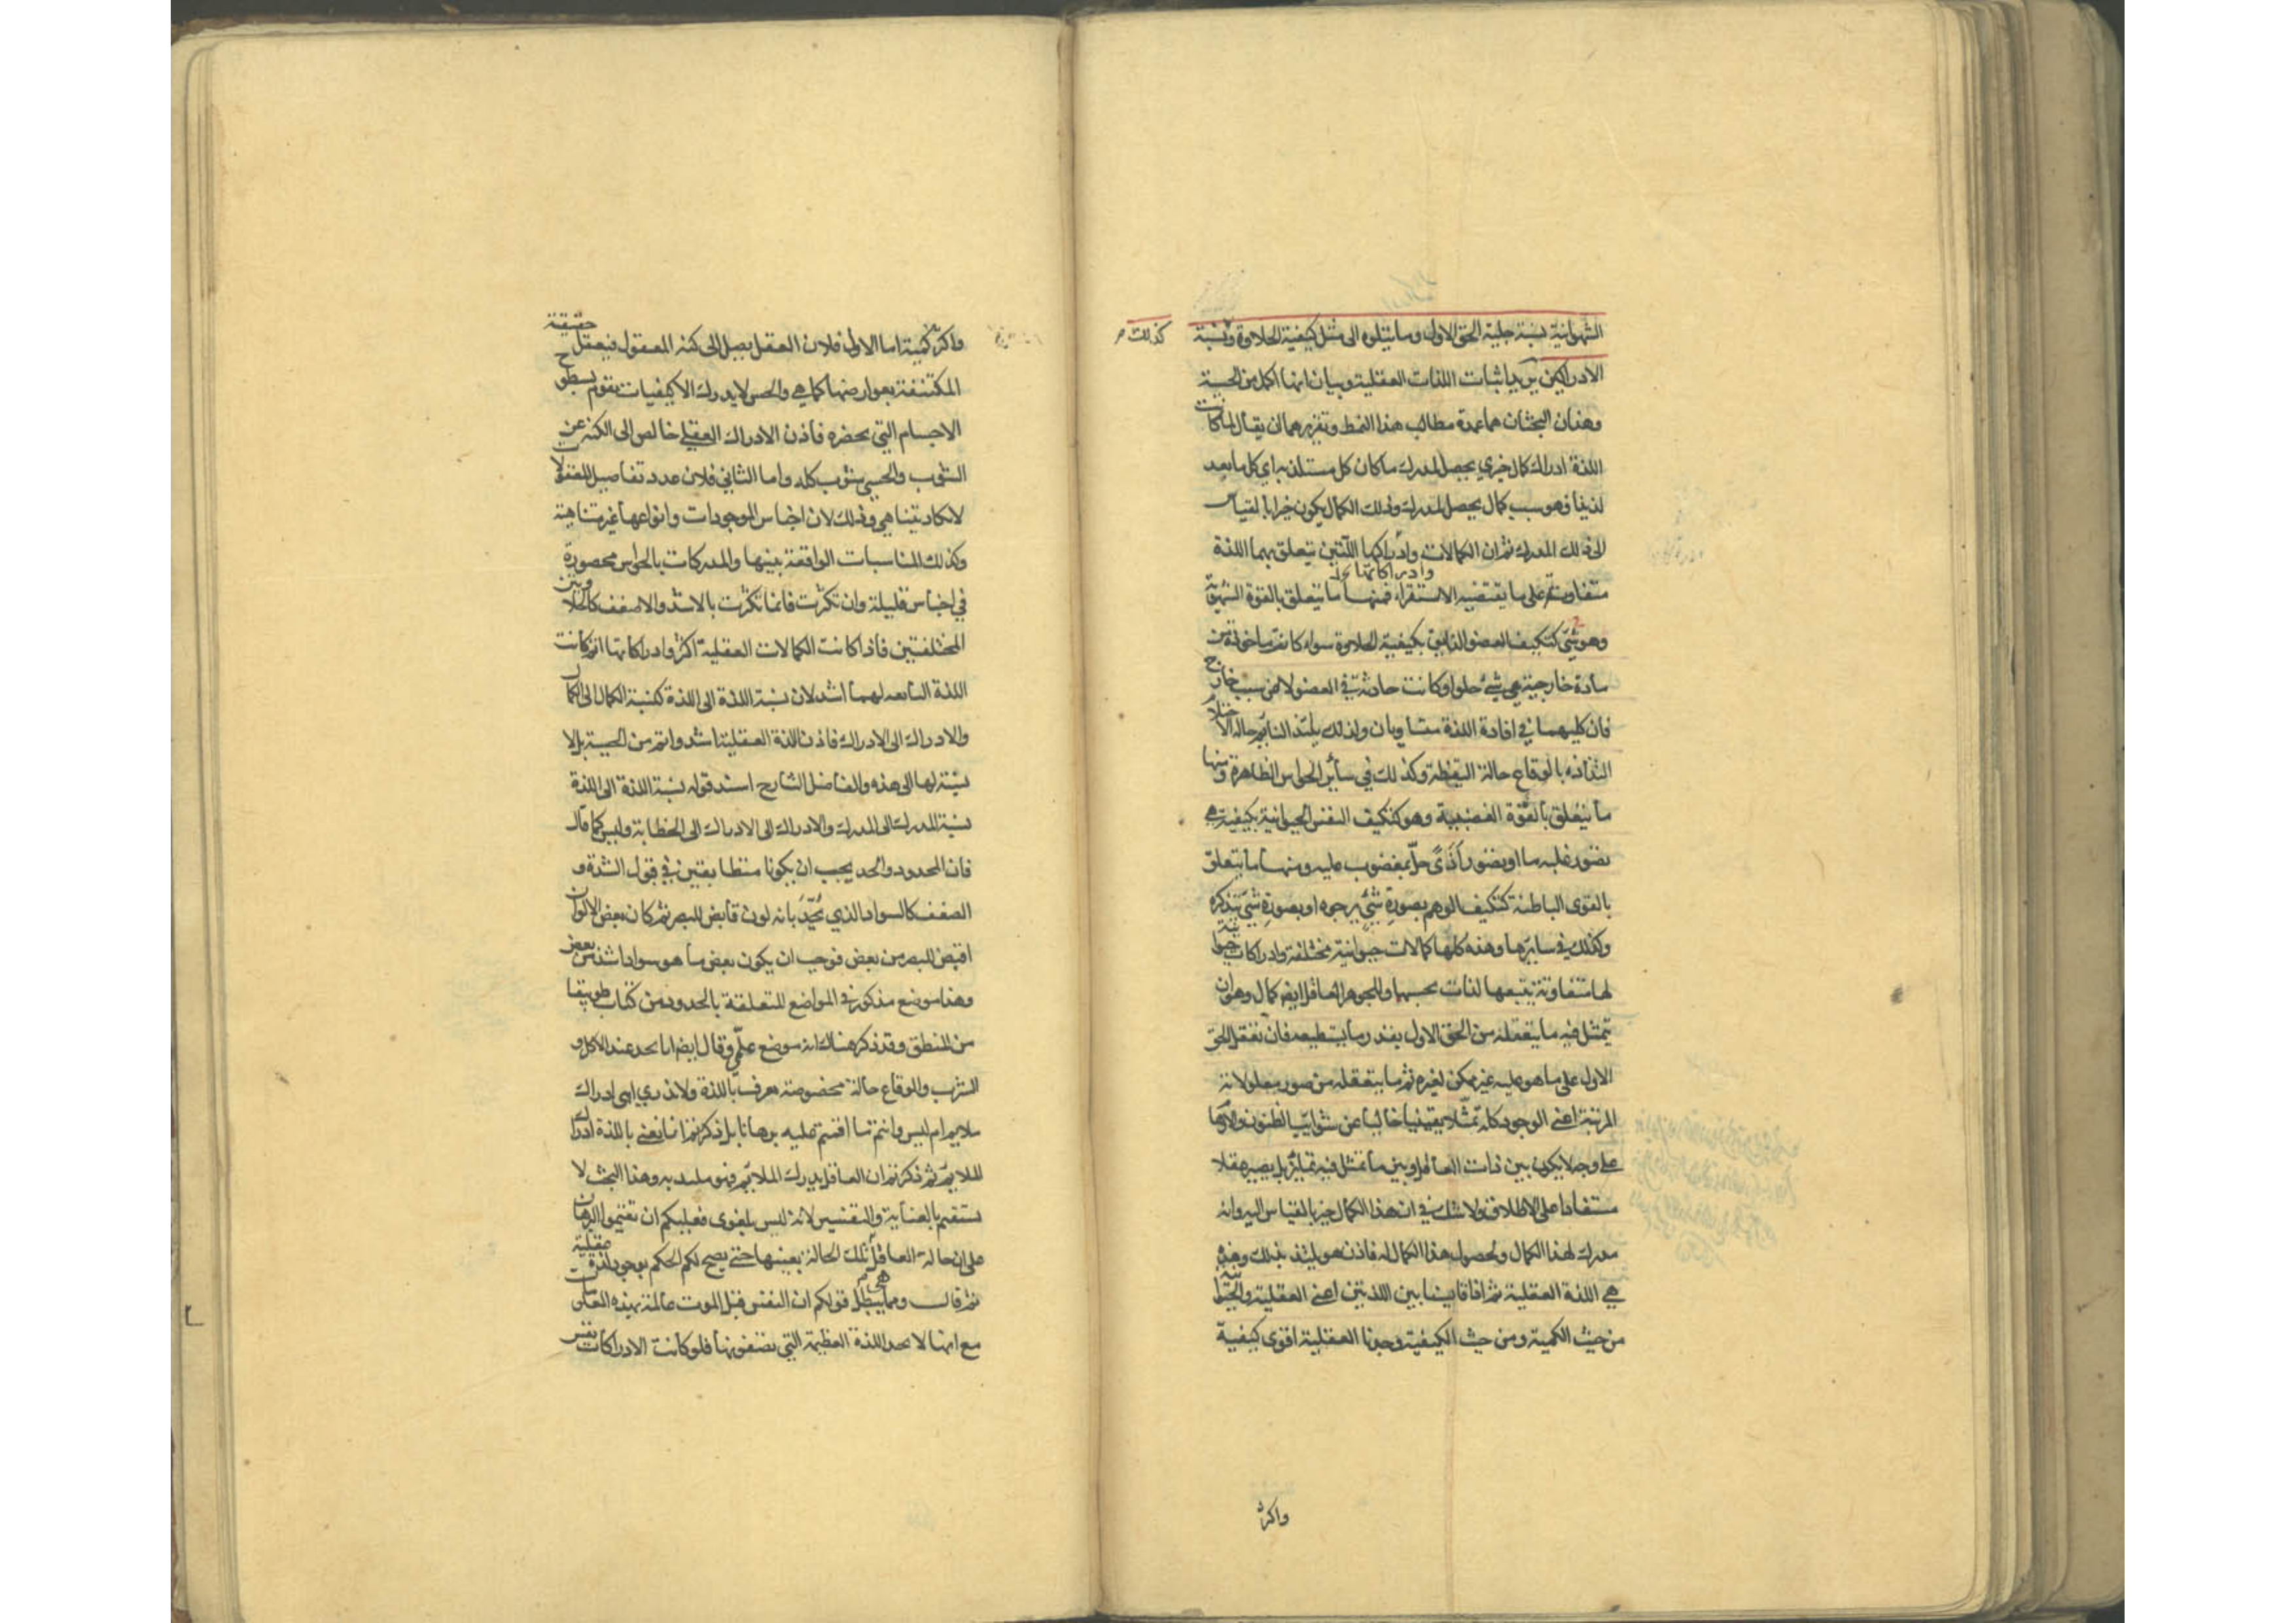 الشهوانية نسبة جلية الحق الاول وما يتلوه الى مثل كيفية الحلاوة ونسبة
كذلك
الادراكين يريد اثبات اللذات العقلية وبيان انها اكمل من الحسية
وهذان البحثان هما عمدة مطالب هذا النمط وتقريرهما ان يقال لما كانت
اللذة ادراك كمال خيري يحصل للمدرك ما كان كل مستلذ به اي كل ما يعد
لذيذا فهو سبب كمال يحصل للمدرك وذلك الكمال يكون خيرا بالقياس
الى ذلك المدرك ثم ان الكمالات وادراكها اللتين يتعلق بهما اللذة
وادراكاتها
متفاوتة على ما يقتضيه الاستقراء فمنها ما يتعلق بالقوة الشهوية
وهو شيء كتكيف العضو الذايق بكيفية الحلاوة سواء كانت ماخوذة من
مادة خارجية هي شيء حلو او كانت حادثة في العضو لا عن سبب خارج
فان كليهما في افادة اللذة متساويان ولذلك يلتذ النايم حالة الاحتلام
التذاذه بالوقاع حالة اليقظة وكذلك في سائر الحواس الظاهرة ومنها
ما يتعلق بالقوة الغضبية وهو كتكيف النفس الحيوانية بكيفية هي
تصور غلبة ما او تصور اذى حل بمغضوب عليه ومنها ما يتعلق
بالقوى الباطنة كتكيف الوهم بصورة شيء يرجوه او بصورة شيء يتذكره
وكذلك في سايرها وهذه كلها كمالات حيوانية مختلفة وادراكات حيوانية
لها متفاوتة يتبعها لذات بحسبها وللجوهر العاقل ايضا كمال وهو ان
يتمثل فيه ما يتعقله من الحق الاول بقدر ما يستطيعه فان تعقل الحق
الاول على ما هو عليه غير ممكن لغيره ثم ما يتعقله من صور معلولاته
المرتبة اعني الوجود كله تمثلا يقينيا خاليا عن شوايب الظنون والاوهام
على وجه لا يكون بين ذات العاقل وبين ما تمثل فيه تمايز بل يصير عقلا
مستفادا على الاطلاق ولا شك في ان هذا الكمال خير بالقياس اليه وانه
مدرك لهذا الكمال ولحصول هذا الكمال له فاذن هو يلتذ بذلك وهذه
هي اللذة العقلية ثم اذا قايسنا بين اللذتين اعني العقلية والحيوانية
من حيث الكمية ومن حيث الكيفية وجدنا العقلية اقوى كيفية
واكثر
واكثر كمية اما الاول فلان العقل يصل الى كنه المعقول فيعقل حقيقة
المكتنفة بعوارضها كما هي والحس لا يدرك الا كيفيات تقوم بسطوح
الاجسام التي يحضره فاذن الادراك العقلي خالص الى الكنه عن
الشوب والحسي شوب كله واما الثاني فلان عدد تفاصيل المعقولات
لا تكاد يتناهى وذلك لان اجناس الموجودات وانواعها غير متناهية
وكذلك المناسبات الواقعة بينها والمدركات بالحواس محصورة
في اجناس قليلة وان تكثرت فانما تكثرت بالاشد والاضعف كالحلاوتين
المختلفتين فاذا كانت الكمالات العقلية اكثر وادراكاتها اتم كانت
اللذة التابعه لهما اشد لان نسبة اللذة الى اللذة كنسبة الكمال الى الكمال
والادراك الى الادراك فاذن اللذة العقلية اشد واتم من الحسية بل لا
نسبة لها الى هذه والفاضل الشارح اسند قوله نسبة اللذة الى اللذة
نسبة المدرك الى المدرك والادراك الى الادراك الى الخطابة وليس كما قال
فان المحدود والحد يجب ان يكونا متطابقين في قبول الشدة و
الضعف كالسواد الذي يحد بانه لون قابض للبصر ثم كان بعض الالوان
اقبض للبصر من بعض فوجب ان يكون بعض ما هو سواد اشد من بعض
وهذا موضع مذكور في المواضع المتعلقة بالحدود من كتاب طوبيقا
من المنطق وقد ذكر هناك انه موضع علمي وقال ايضا انا نجد عند الاكل و
الشرب والوقاع حالة مخصوصة نعرف باللذة ولا ندري اهي ادراك
ملايم ام ليس وانتم ما اقمتم عليه برهانا بل ذكرتم انا نعني باللذة ادراك
الملايم ثم ذكرتم ان العاقل يدرك الملايم فهو ملتذ به وهذا البحث لا
يستقيم بالعناية والتفسير لانه ليس بلغوي فعليكم ان تقيموا البرهان
على ان حالة العاقل هي تلك الحالة بعينها حتى يصح لكم الحكم بوجود لذة عقلية
ثم قال ومما يبطل قولكم ان النفس قبل الموت عالمة بهذه المعلومات
مع انها لا تجد اللذة العظيمة التي تصفونها فلو كانت الادراكات نفس